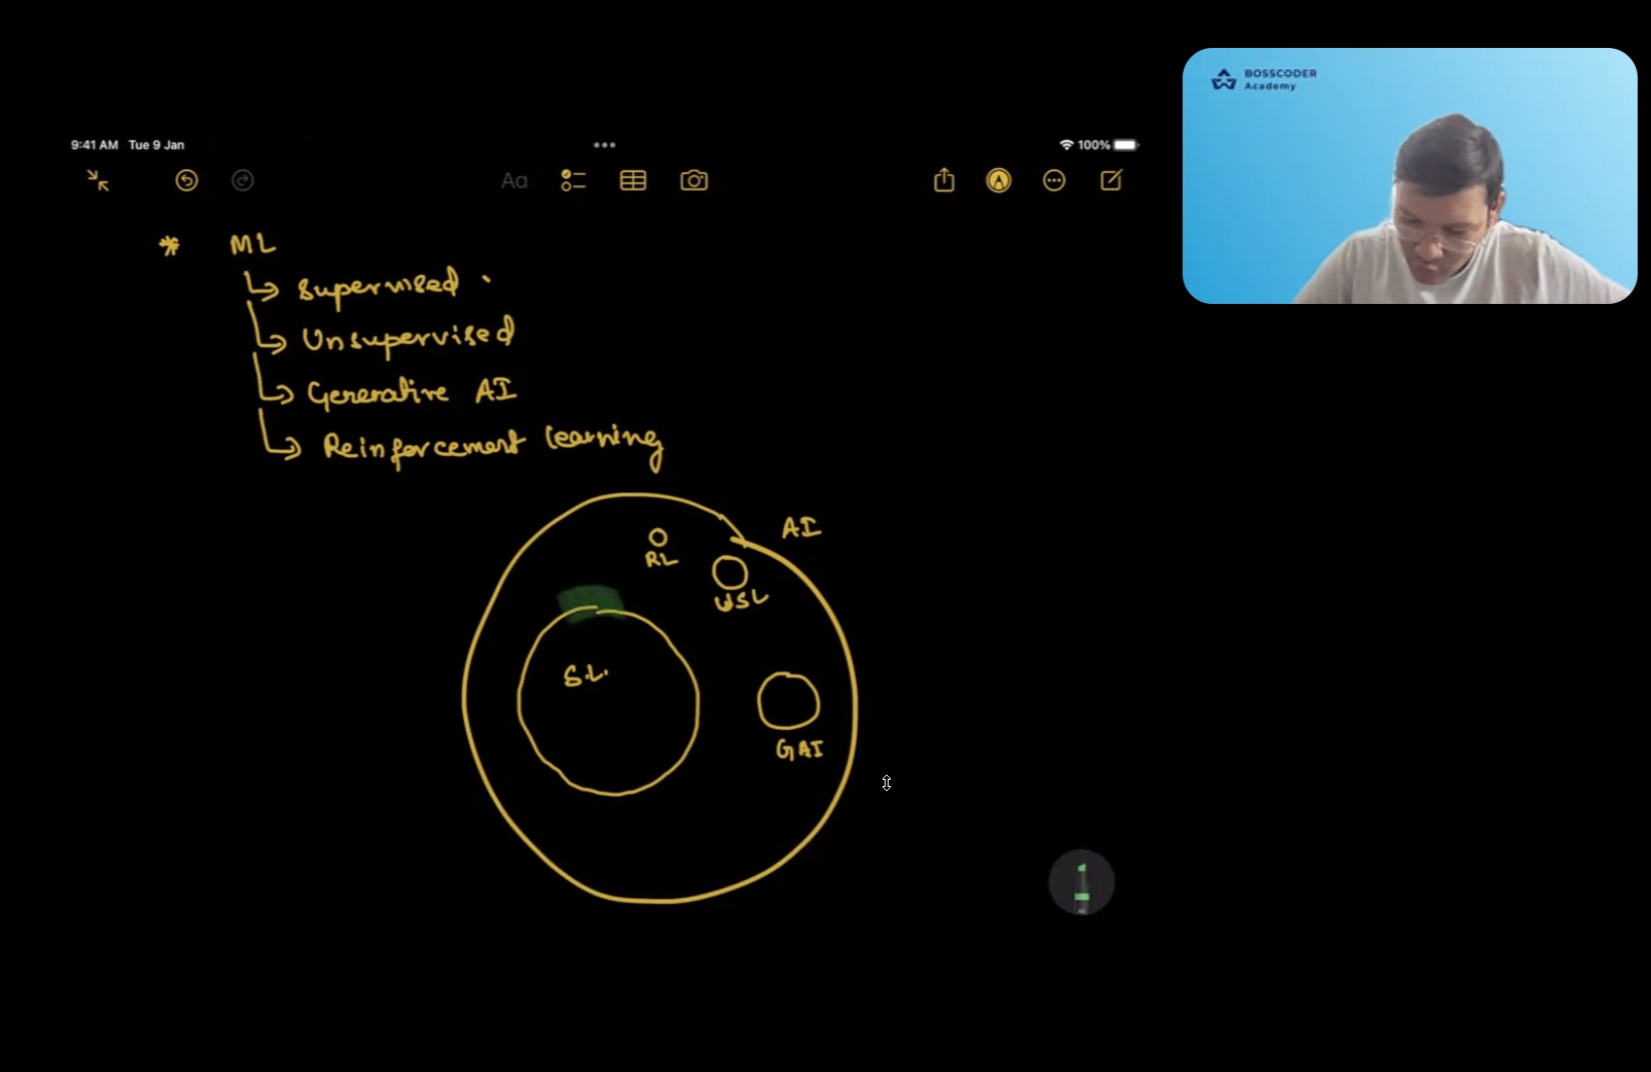 BOSSCODER
Academy
9:41 AM Tue 9 Jan
100%
Aa
* ML
Supervised
Unsupervised
Generative AI
Reinforcement learning
AI
RL
USL
S.L.
GAI